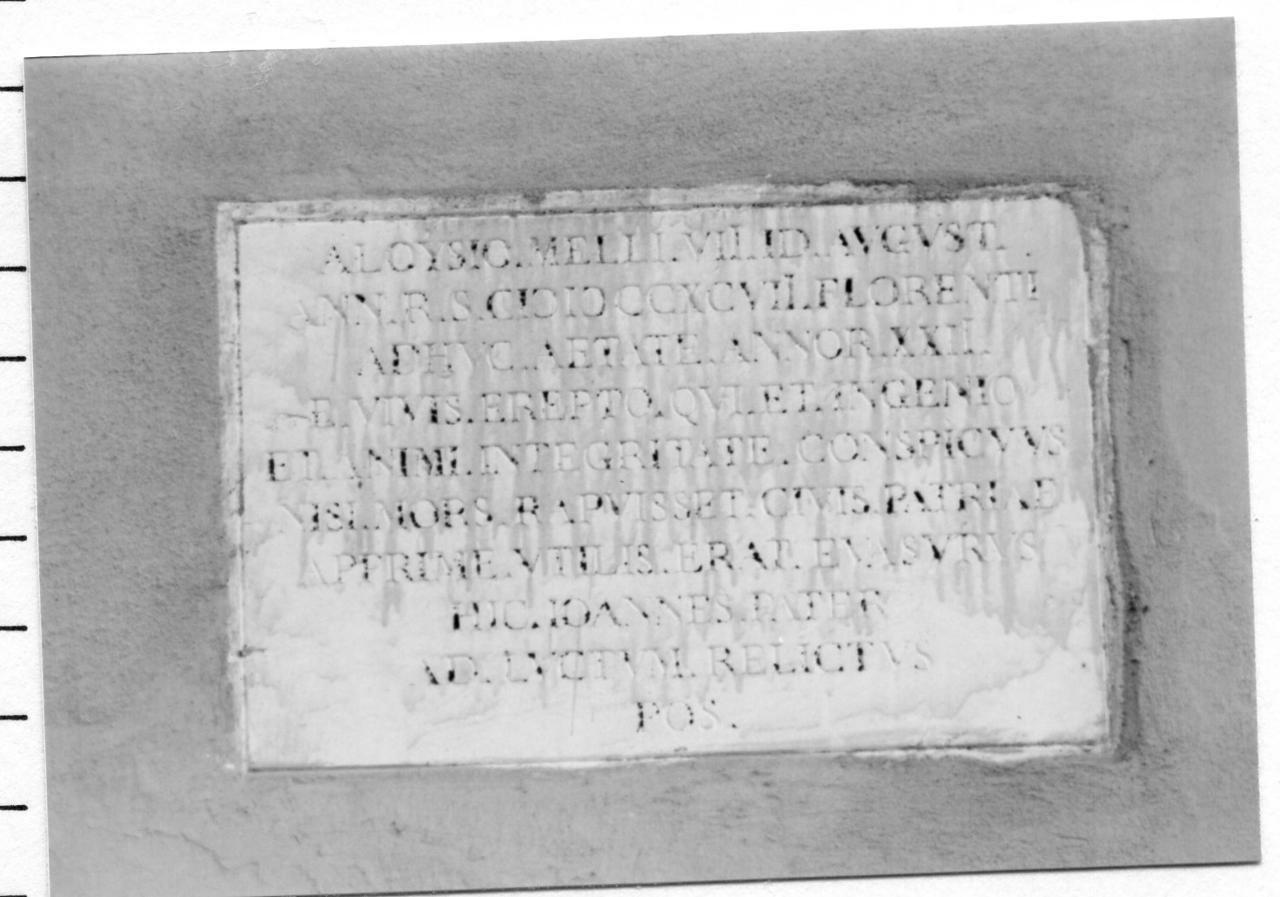 ALOYSIO.MELLI.VII.ID.AVGVST.
ANN.R.S.CIƆIƆCCXCVII.FLORENTI
ADHVC.AETATE.ANNOR.XXII.
E.VIVIS.EREPTO.QVI.ET.INGENIO
ET.ANIMI.INTEGRITATE.CONSPICVVS
NISI.MORS.RAPVISSET.CIVIS.PATRIAE
APPRIME.VTILIS.ERAT.EVASVRVS
HIC.IOANNES.PATER
AD.LVCTVM.RELICTVS
POS.